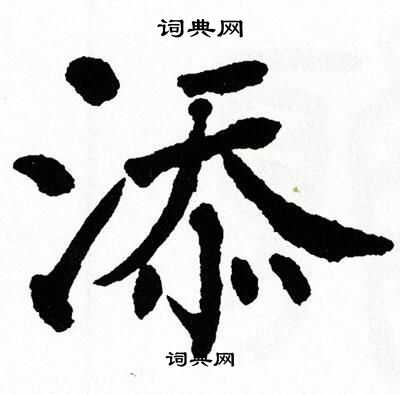 词典网
添
词典网